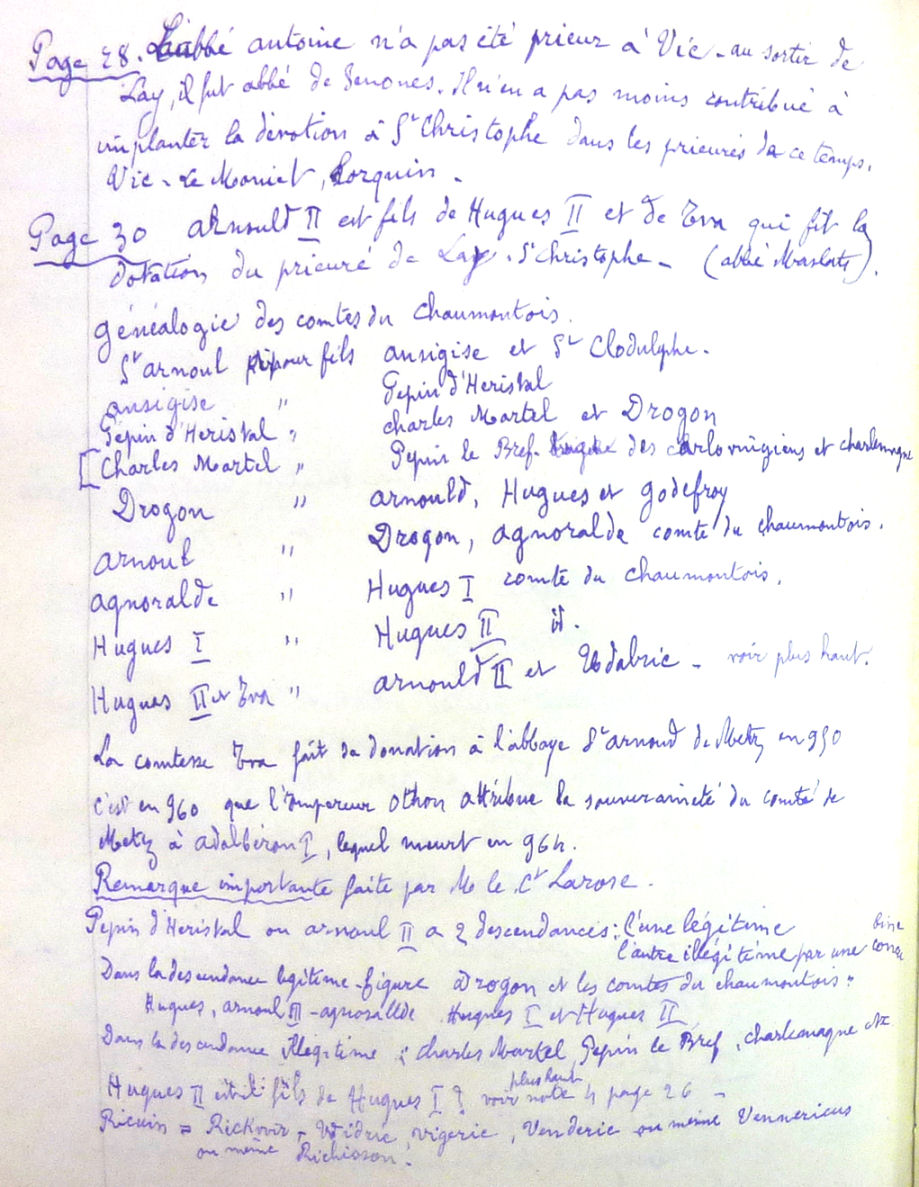 Page 28. L'abbé antoine n'a pas été prieur à Vic - au sortir de
Lay, il fut abbé de Senones. Il n'en a pas moins contribué à
implanter la dévotion à St Christophe dans les prieurés de ce temps.
Vic - Le Moniet, Lorquin -
Page 30 arnould II est fils de Hugues II et de Eva qui fit la
dotation du prieuré de Lay - St Christophe - (abbé Maslats).
généalogie des comtes du Chaumontois.
St arnoul pour fils ansigise et St Clodulphe.
ansigise " Pepin d'Heristal
Pépin d'Heristal " charles Martel et Drogon
[Charles Martel " Pepin le Bref - des Carlovingiens et charlemagne
Drogon " arnould, Hugues et godefroy
arnoul " Drogon, agnoralde comte du chaumontois.
agnoralde " Hugues I comte du chaumontois.
Hugues I " Hugues II id.
Hugues II et Eva " arnould II et Udabric - voir plus haut.
La comtesse Eva fait sa donation à l'abbaye St arnoud de Metz en 950
c'est en 960 que l'Empereur Othon attribue la souveraineté du comté de
Metz à adalbéron I, lequel meurt en 964.
Remarque importante faite par M le Ct Larose.
Pepin d'Heristal ou arnoul II a 2 descendances : l'une légitime
l'autre illégitime par une
Dans la descendance légitime - figure Drogon et les comtes du chaumontois :
Hugues, arnoul III - agnoralde Hugues I et Hugues II
Dans la descendance illégitime : charles Martel, Pepin le Bref, charlemagne etc
Hugues II est-il fils de Hugues I ? voir note 4 plus haut page 26 -
Ricuin = Rickovir - Widric, vigeric, Venderic ou même Vennericus
ou même Richisson.